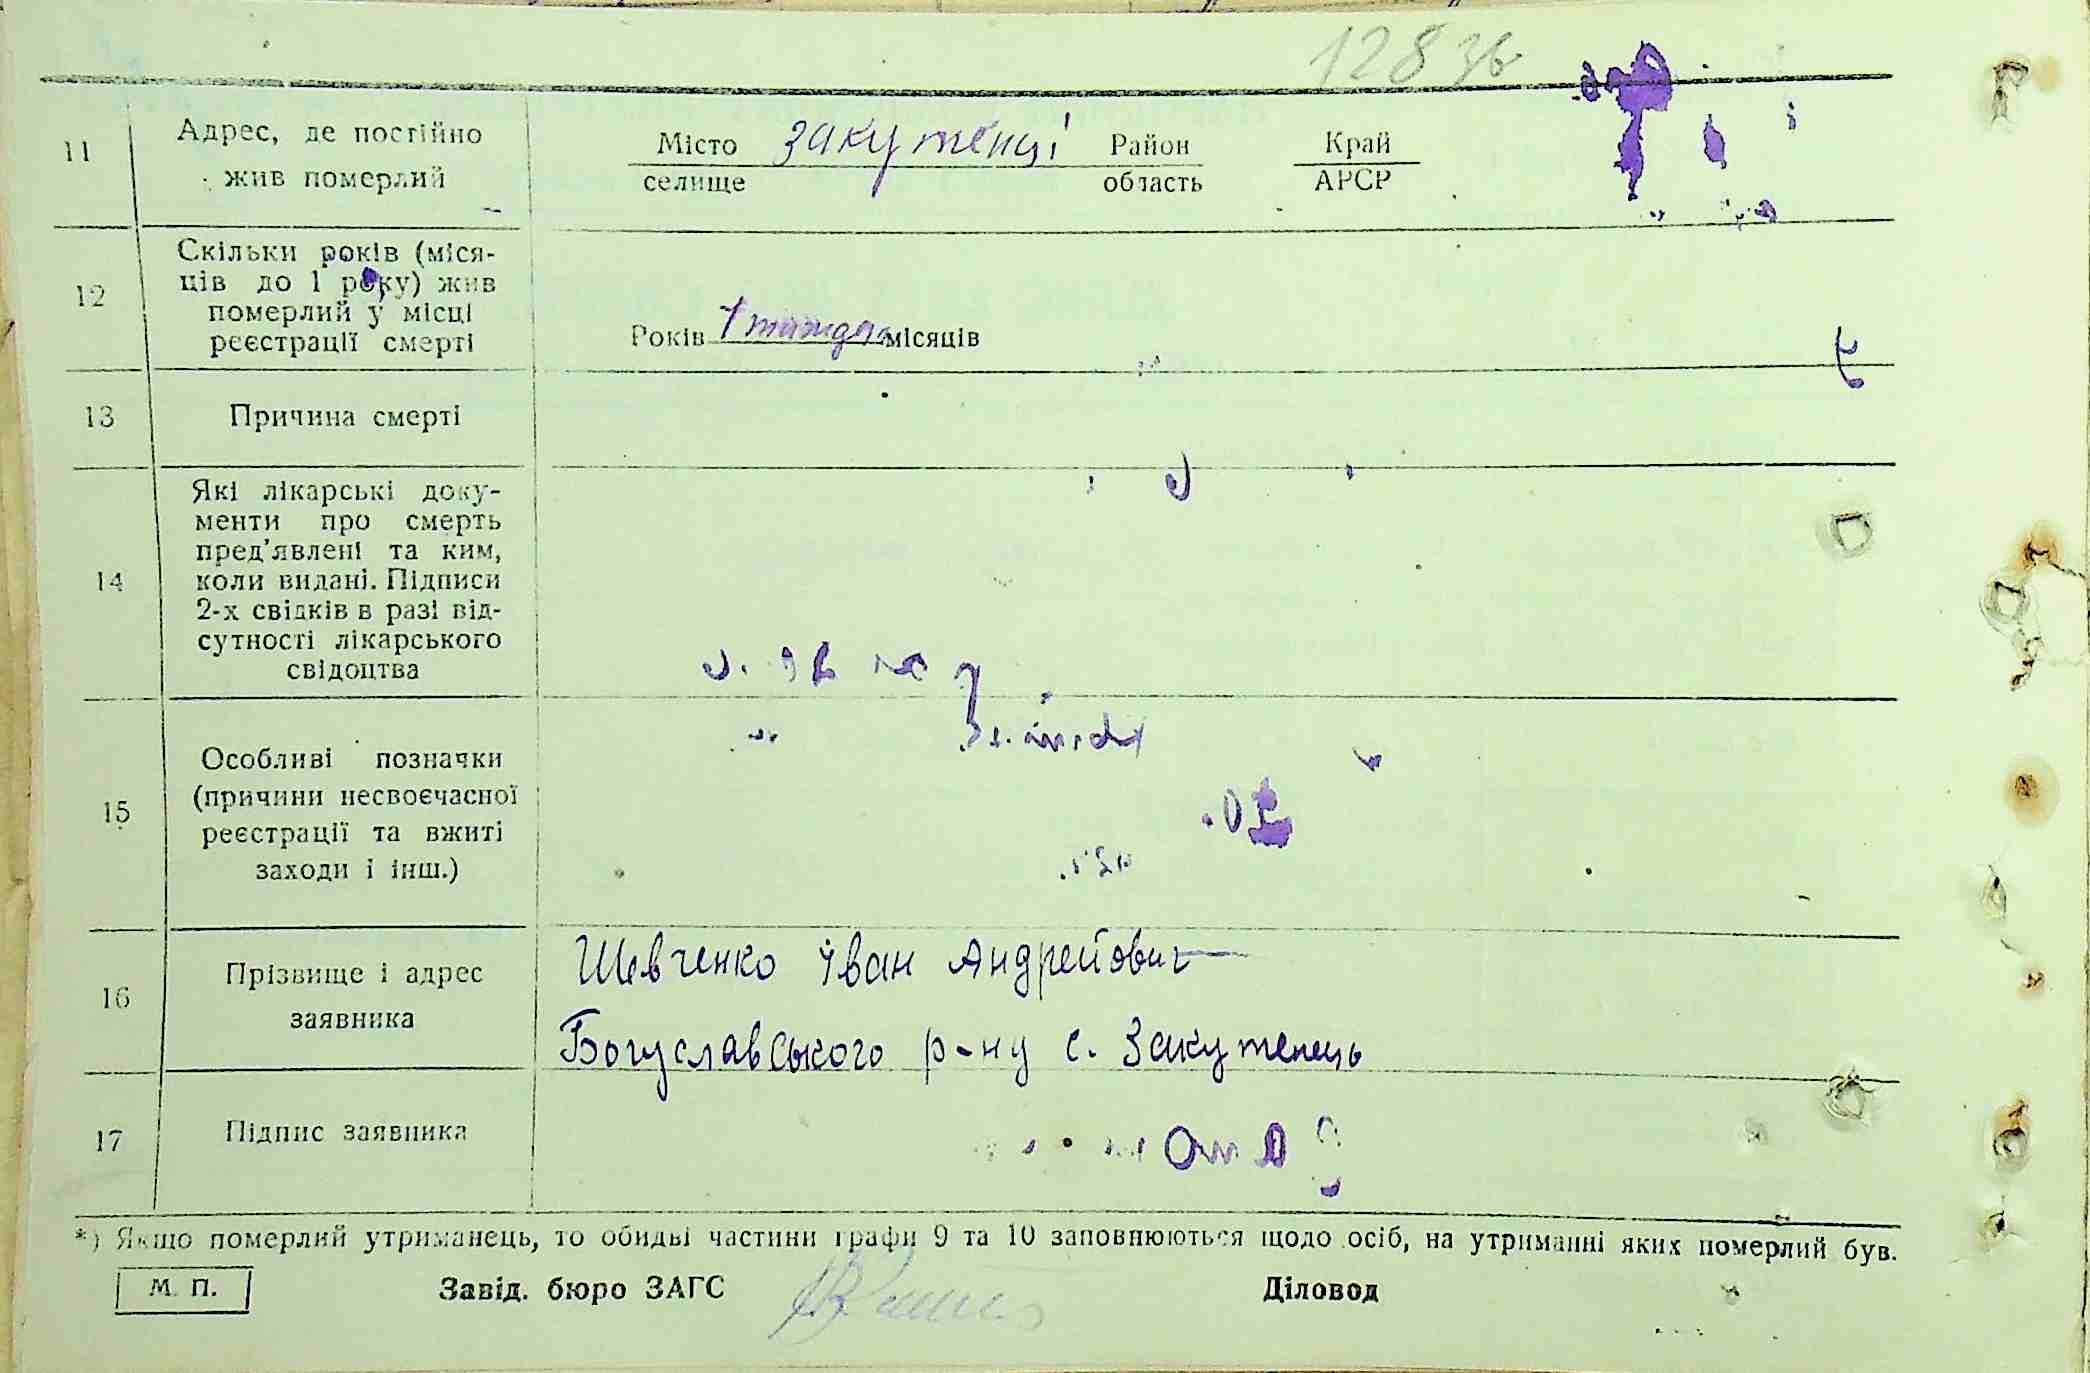 128 зв
11
Адрес, де постійно
жив померлий
Місто закутенці Район Край
селище область АРСР
12
Скільки років (міся-
ців до 1 року) жив
померлий у місці
реєстрації смерті
Років 1 тиждень місяців
13
Причина смерті
14
Які лікарські доку-
менти про смерть
пред'явлені та ким,
коли видані. Підписи
2-х свідків в разі від-
сутності лікарського
свідоцтва
15
Особливі позначки
(причини несвоєчасної
реєстрації та вжиті
заходи і інш.)
16
Прізвище і адрес
заявника
Шевченко Іван Андрейович
Богуславського р-ну с. Закутенець
17
Підпис заявника
*) Якщо померлий утриманець, то обидві частини графи 9 та 10 заповнюються щодо осіб, на утриманні яких померлий був.
М. П. Завід. бюро ЗАГС Діловод